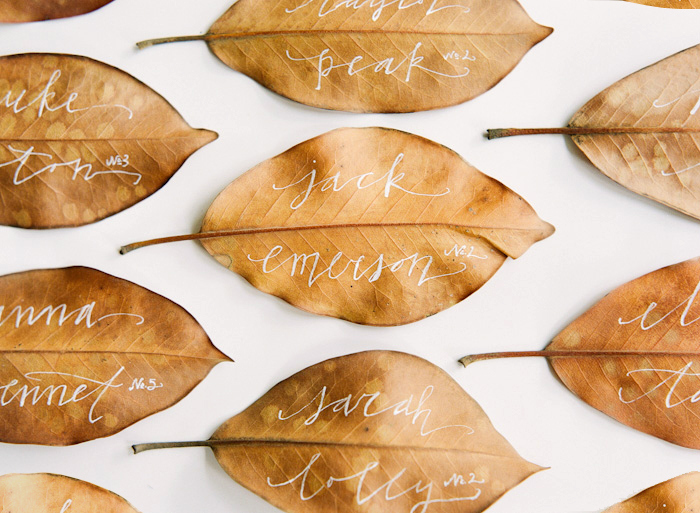 taylor
peak No. 2
uke
ton No. 3
jack
emerson No. 2
anna
ennet No. 5
sarah
lolly No. 2
el
ta